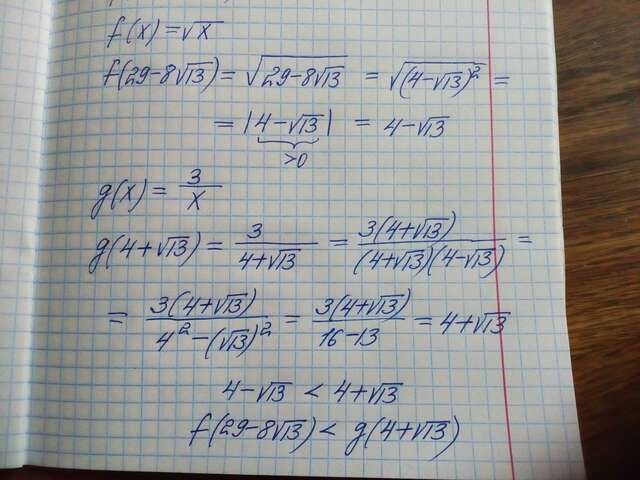 f(x) = √x
f(29-8√13) = √(29-8√13) = √((4-√13)²) =
= |4-√13| = 4-√13
>0
g(x) = 3/x
g(4+√13) = 3/(4+√13) = 3(4+√13)/((4+√13)(4-√13)) =
= 3(4+√13)/(4²-(√13)²) = 3(4+√13)/(16-13) = 4+√13
4-√13 < 4+√13
f(29-8√13) < g(4+√13)